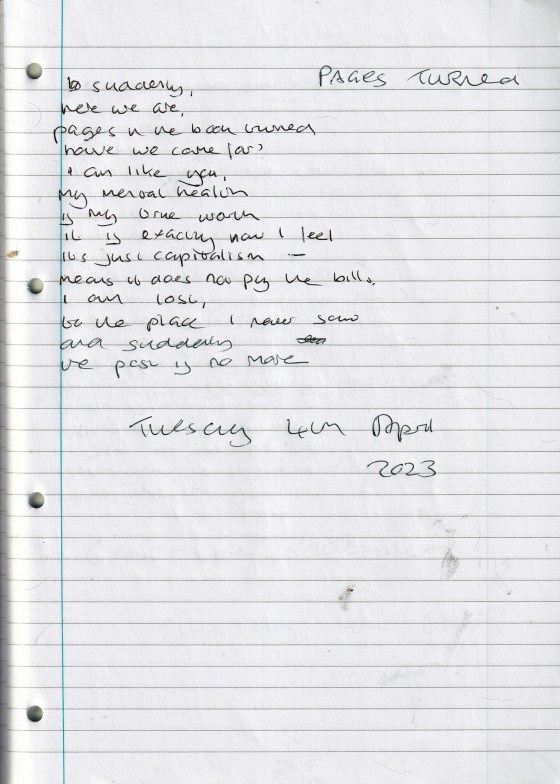 PAGES TURNED
so suddenly,
here we are,
pages in the book turned
have we come far?
I am like you,
my mental health
is my true worth
it is exactly how I feel
its just capitalism –
means it does not pay the bills.
I am lost,
to the place I never saw
and suddenly
the past is no more
Tuesday 4th April
2023